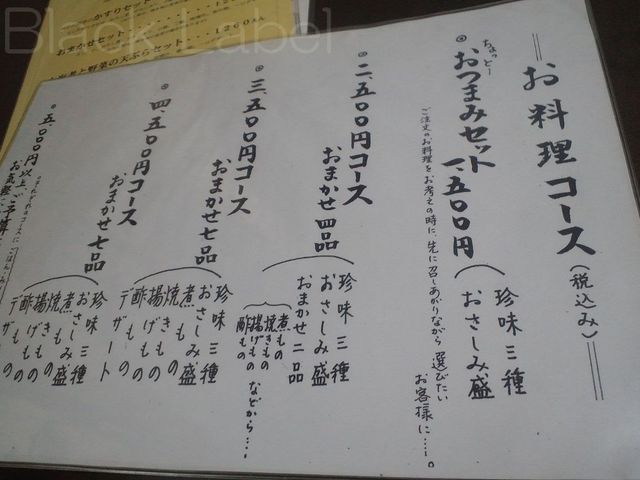 Black Label
おまかせセット・・・1260
海老と野菜の天ぷらセット・・・
お料理コース（税込み）
◎ちょっと一
おつまみセット 一、五〇〇円
珍味三種
おさしみ盛
ご注文のお料理をお考えの時に、先に召しあがりながら選びたい
お客様に…。
◎二、五〇〇円コース
おまかせ四品
珍味三種
おさしみ盛
おまかせ二品
煮もの
焼きもの
揚げもの
酢もの
などから…
◎三、五〇〇円コース
おまかせ七品
珍味三種
おさしみ盛
煮もの
焼きもの
揚げもの
酢もの
デザート
◎四、五〇〇円コース
おまかせ七品
珍味三種
おさしみ盛
煮もの
焼きもの
揚げもの
酢もの
デザ
◎五、〇〇〇円以上、ご予算
お気軽に